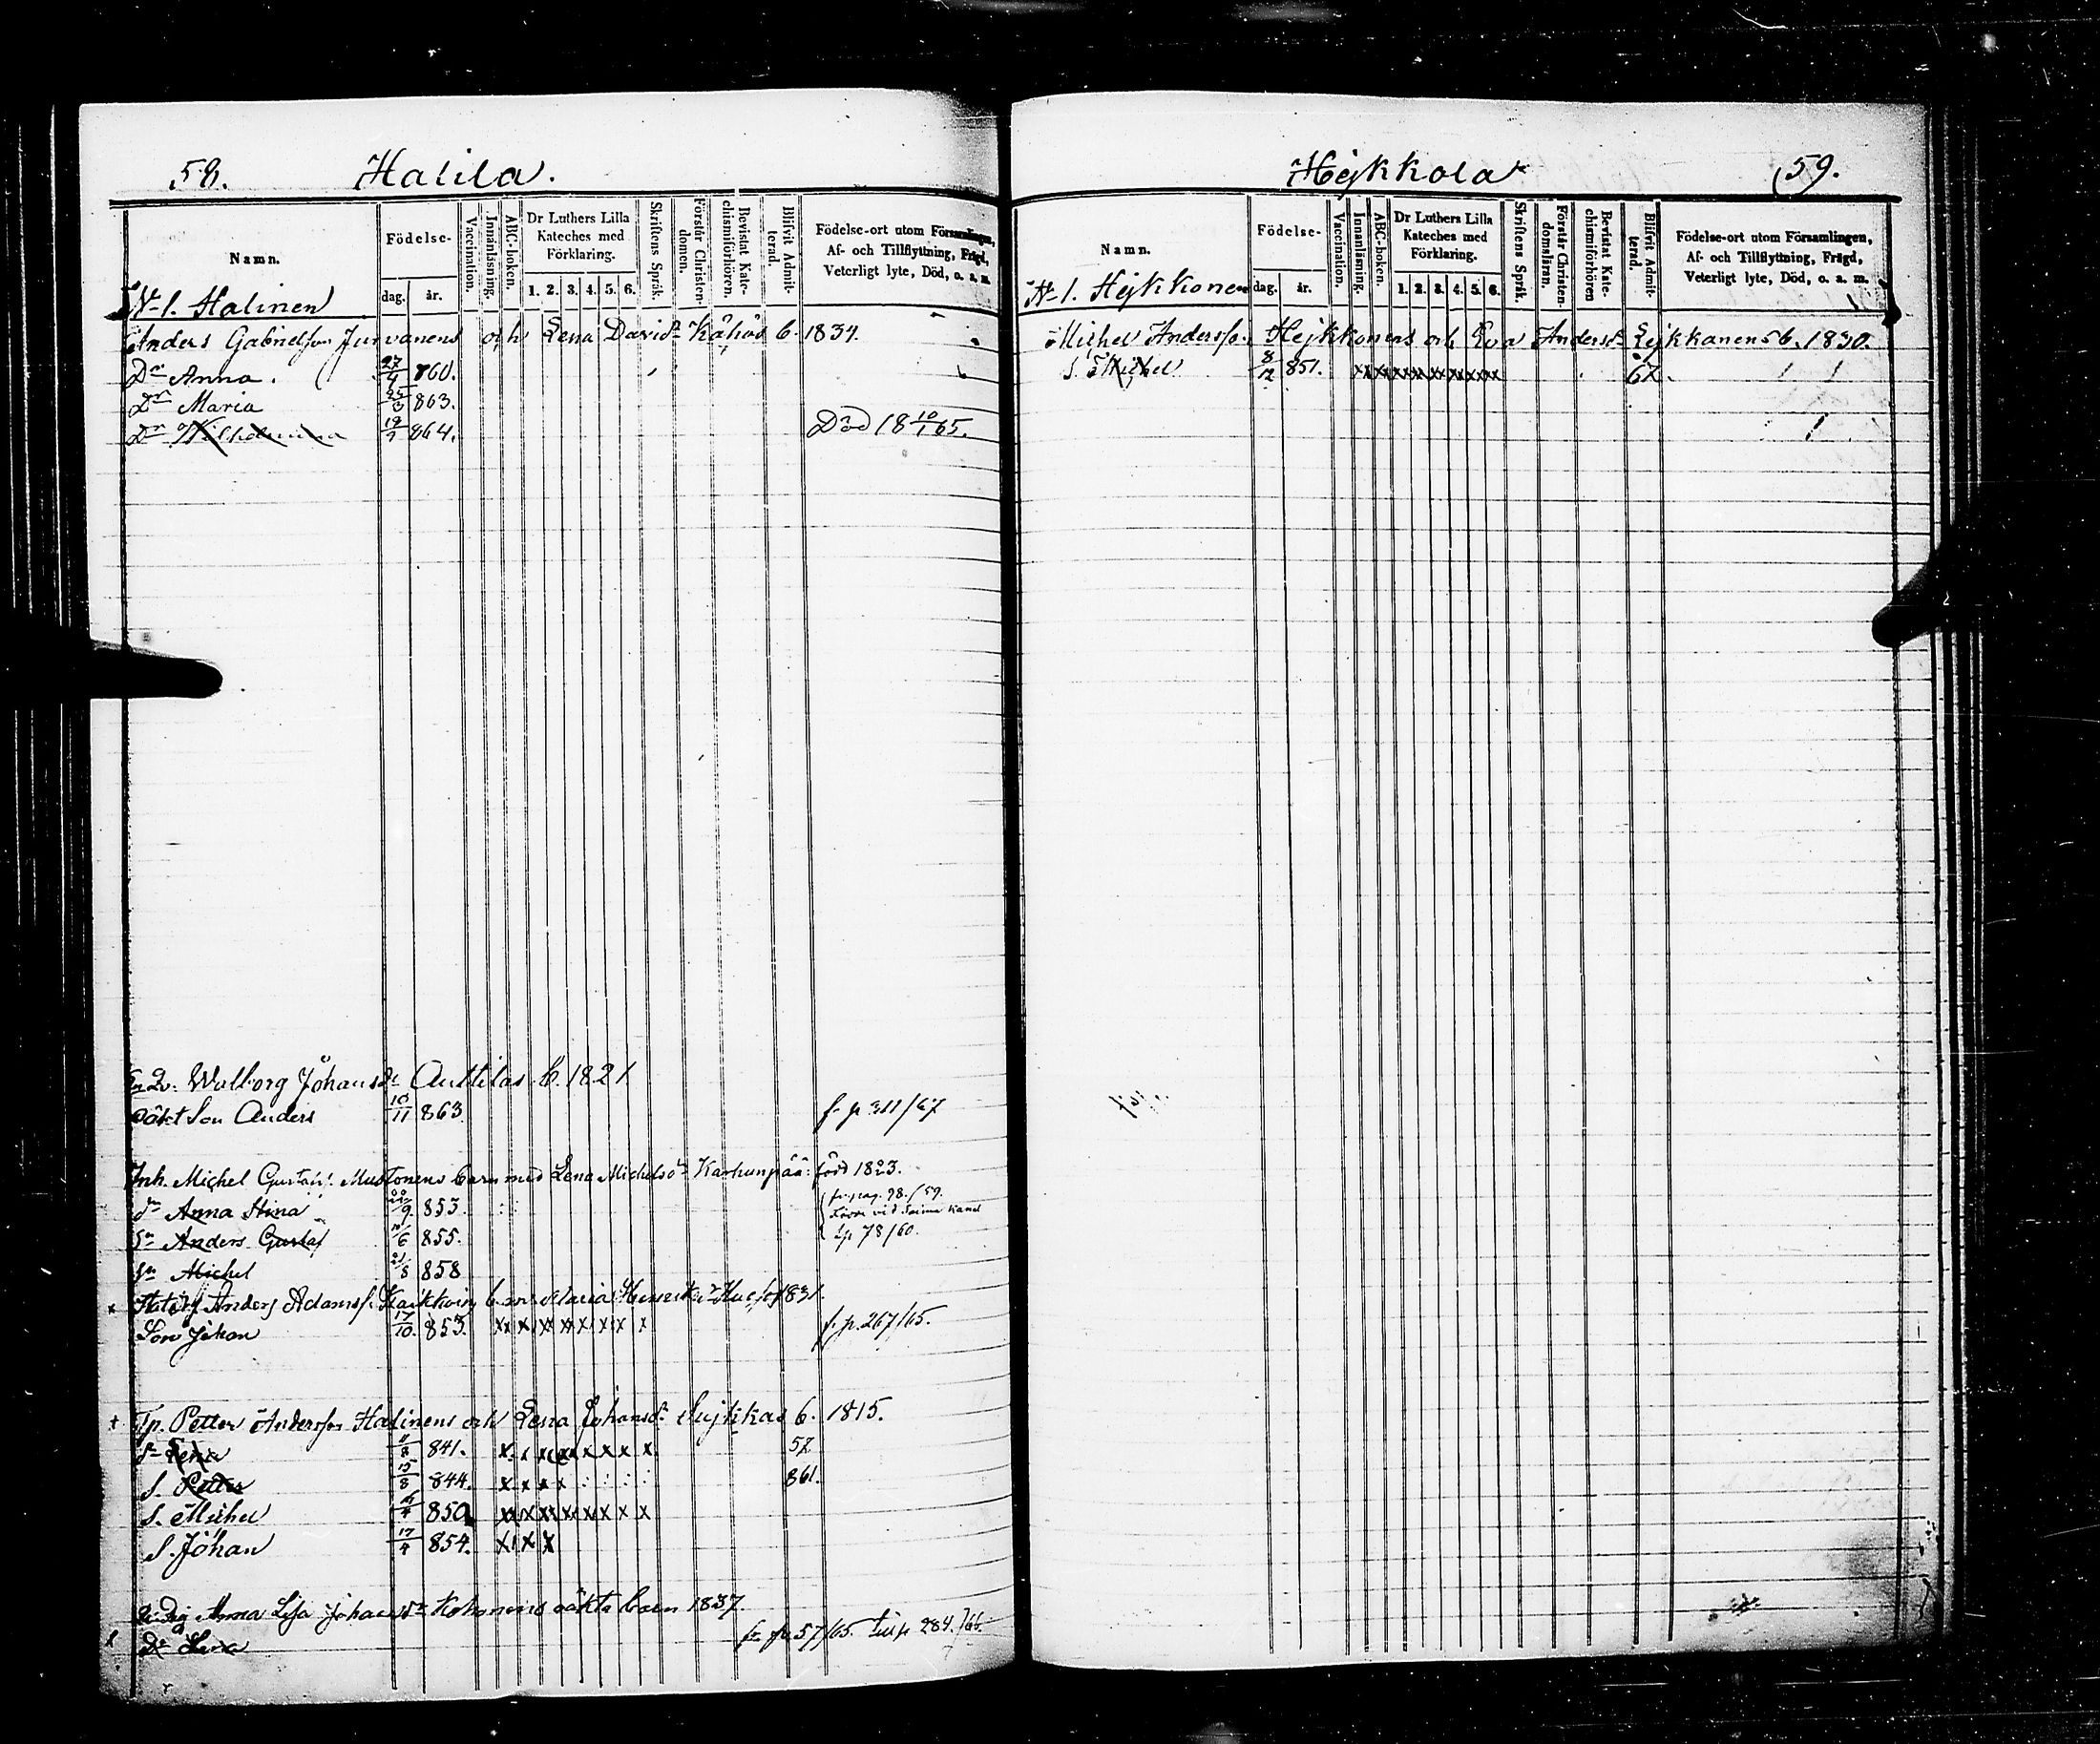 58. Halila.
Namn.
Födelse-
dag. år.
Vaccination.
Innanläsning.
ABC-boken.
Dr Luthers Lilla Kateches med Förklaring.
1. 2. 3. 4. 5. 6.
Skriftens Språk.
Förstår Christendomen.
Bevistat Katechismiförhören.
Blifvit Admitterad.
Födelse-ort utom Församlingen,
Af- och Tillflyttning, Frägd,
Veterligt lyte, Död, o. a. m.
N 1. Halinen
Anders Gabrielson Jurvanens och Lena Davids Kähös b. 1834.
Dr Anna. 27/4 860.
Dr Maria 25/3 863.
Dr Wilhelmina 19/7 864. Död 18 10/1 65.
Walborg Johans dr Anttilas b. 1821.
oäkt Son Anders 10/11 863 fr p 311/67
Inh. Michel Gustafs. Mustonens barn med Lena Michelsdr Karhunpää: född 1823.
dr Anna Stina 22/9 853. fr. pag. 98./59.
Sn Anders Gustaf /6 855. 78/60.
Sn Michel 21/8 858
Anders Adamss. b. m. Maria 1831.
Son Johan 17/10. 853. xx x xx xx x x x x f. p. 267/65.
Tp. Petter Andersson Halinens och Lena Johansdr b. 1815.
dr Lena 11/8 841. x x x x x x x x 57
S. Petter 15/8 844. x x x x : : : : 861.
S. Michel 850 xx x xx xx x x x x
S. Johan 17/4 854. x x x
Anna Lisa Johansdr Kohonens oäkta barn 1837.
Dr Lena fr p. 57/65. till p 284./66.
Hejkkola 59.
Namn.
Födelse-
dag. år.
Vaccination.
Innanläsning.
ABC-boken.
Dr Luthers Lilla Kateches med Förklaring.
1. 2. 3. 4. 5. 6.
Skriftens Språk.
Förstår Christendomsläran.
Bevistat Katechismiförhören
Blifvit Admitterad.
Födelse-ort utom Församlingen,
Af- och Tillflyttning, Frägd,
Veterligt lyte, Död, o. a. m.
N 1. Hejkkonen
Michel Andersson Hejkkonens och Eva Andersdr b. 1830.
S. Michel 8/12 851. xx xx xx xx xx xx xx xx 67.